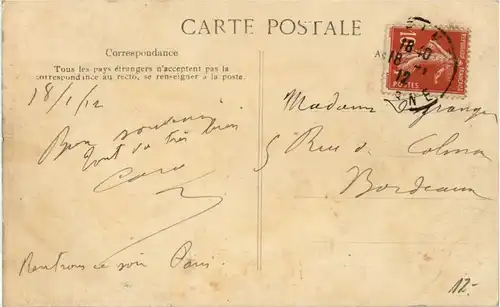 CARTE POSTALE
Correspondance
Tous les pays étrangers n'acceptent pas la
correspondance au recto, se renseigner à la poste.
18/1/12
Bon souvenir
tout va très bien
Rentrons ce soir Paris.
10
POSTES
18-10
18
12
Madame Lagrange
5 Rue de Colmar
Bordeaux
12-